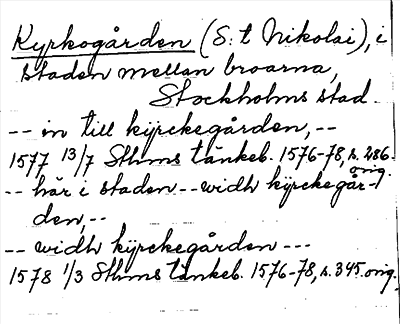 Kyrkogården (S:t Nikolai), i
staden mellan broarna,
Stockholms stad.
-- in till kijrckegården, --
1577 13/7 Sthms tänkeb. 1576-78, s. 286
orig.
-- här i staden -- widh kijrckegår-
den, --
-- widh kijrckegården ---
1578 1/3 Sthms tänkeb. 1576-78, s. 345 orig.